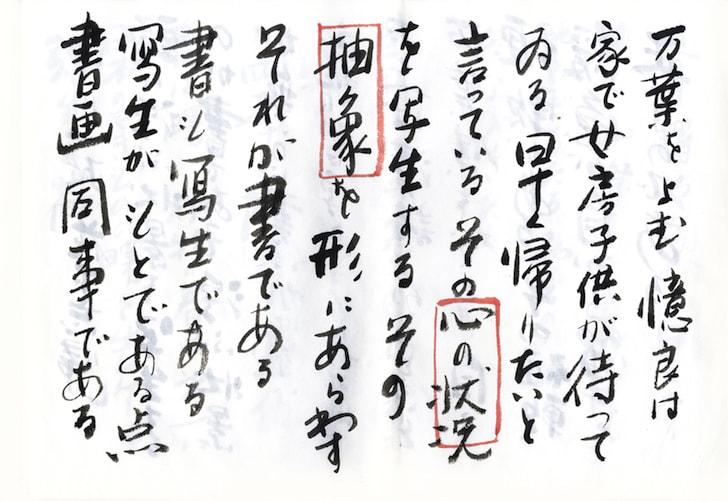 万葉をよむ 憶良は
家で女房子供が待って
ゐる 早く帰りたいと
言っている その心の状況
を写生する その
抽象を形にあらわす
それが書である
書も写生である
寫生がもとである点
書画同事である